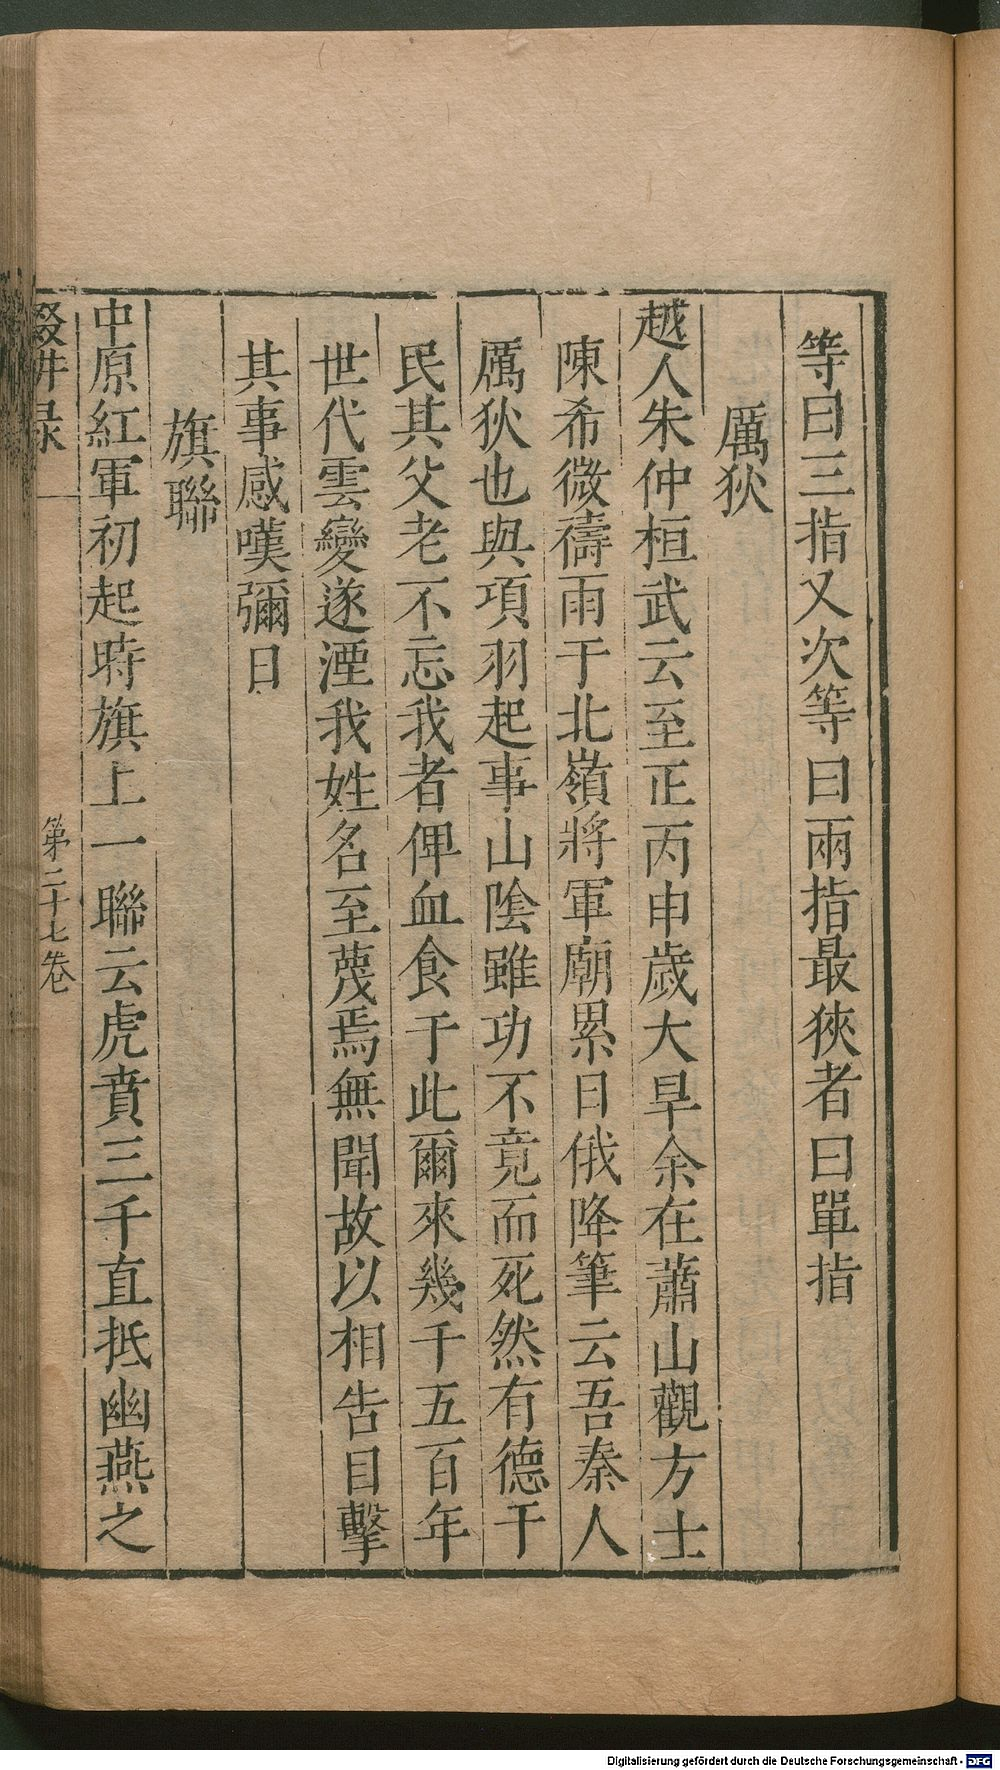 等曰三指又次等曰兩指最狹者曰單指
厲狄
越人朱仲桓武云至正丙申歲大旱余在蕭山觀方士
陳希微禱雨于北嶺將軍廟累日俄降筆云吾秦人
厲狄也與項羽起事山陰雖功不竟而死然有德于
民其父老不忘我者俾血食于此爾來幾千五百年
世代雲變遂湮我姓名至蔑焉無聞故以相告目擊
其事感嘆彌日
旗聯
中原紅軍初起時旗上一聯云虎賁三千直抵幽燕之
輟耕录
第二十七卷
Digitalisierung gefördert durch die Deutsche Forschungsgemeinschaft - DFG